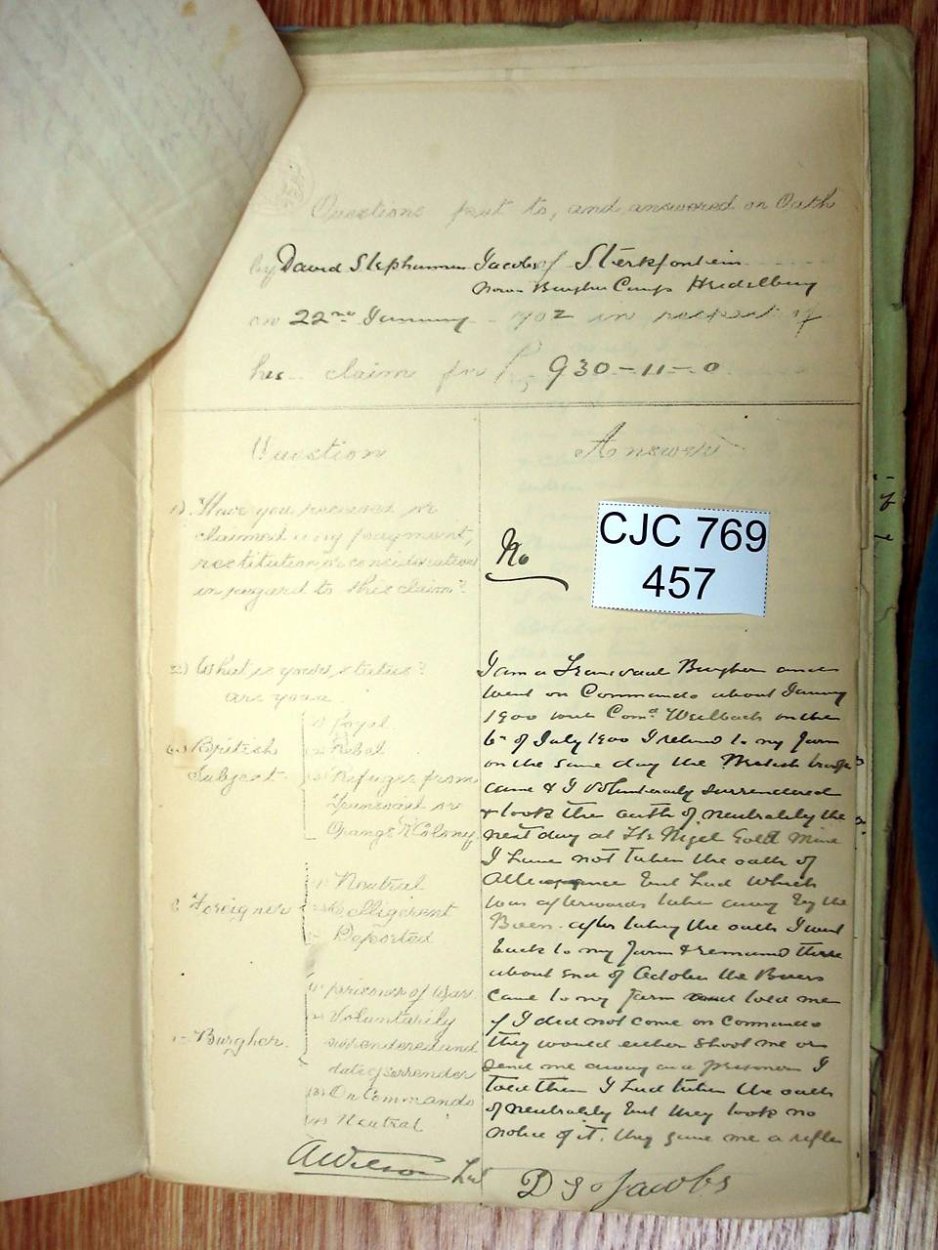 Questions put to, and answered on Oath
by David Stephannus Jacobs of Sterkfontein
now Burgher Camp Heidelberg
on 22nd January 1902 in respect of
his claim for £ 930-11-0
Question
Answer
1) Have you received or
claimed any payment,
restitution or consideration
in regard to this claim?
No
CJC 769
457
2) What is your status?
are you
British
Subject
1) Loyal
Rebel
Refugee from
Transvaal or
Orange R Colony
Foreigner
Neutral
Belligerent
Deported
Burgher
prisoner of War
Voluntarily
surrendered and
date of surrender
On Commando
Neutral
I am a Transvaal Burgher and
went on Commando about January
1900 with Comdt Weilbach on the
6th of July 1900 I returnd to my farm
on the same day the British troops
came & I voluntarily surrendered
& took the oath of neutrality the
next day at the Nigel Gold Mine
I have not taken the oath of
Allegiance but had which
was afterwards taken away by the
Boers. after taking the oath I went
back to my farm & remaind there
about end of October the Boers
came to my farm and told me
if I did not come on Commando
they would either shoot me or
send me away as a prisoner I
told them I had taken the oath
of neutrality but they took no
notice of it. they gave me a rifle
AWilson Lt
D S Jacobs